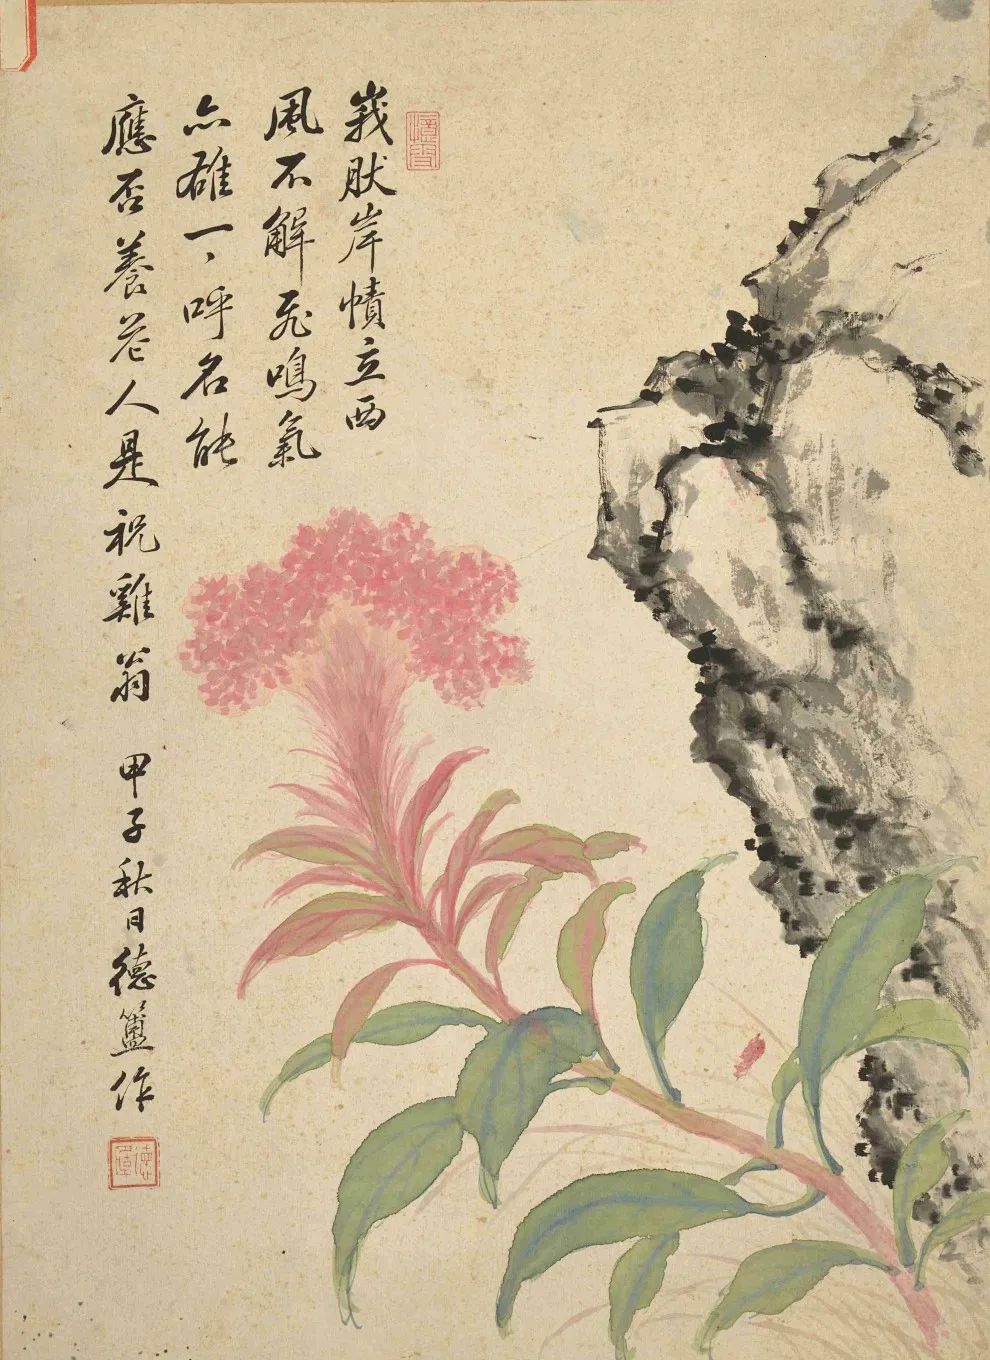 峩肰岸幘立西
風不解飛鳴氣
亦雄一〻呼名能
應否養花人是祝雞翁 甲子秋日德作